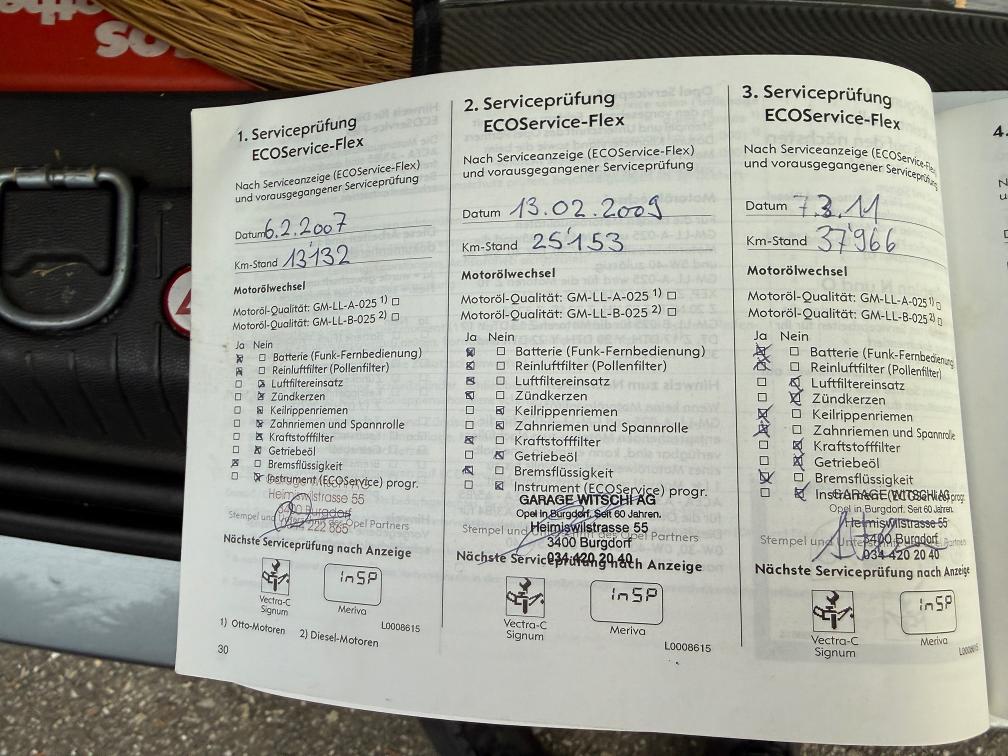 1. Serviceprüfung
ECOService-Flex
Nach Serviceanzeige (ECOService-Flex)
und vorausgegangener Serviceprüfung
Datum 6.2.2007
Km-Stand 13'132
Motorölwechsel
Motoröl-Qualität: GM-LL-A-025 1) □
Motoröl-Qualität: GM-LL-B-025 2) □
Ja Nein
☒ □ Batterie (Funk-Fernbedienung)
☒ □ Reinluftfilter (Pollenfilter)
□ ☒ Luftfiltereinsatz
□ ☒ Zündkerzen
□ ☒ Keilrippenriemen
□ ☒ Zahnriemen und Spannrolle
□ ☒ Kraftstofffilter
□ ☒ Getriebeöl
☒ □ Bremsflüssigkeit
□ ☒ Instrument (ECOService) progr.
Heimiswilstrasse 55
3400 Burgdorf
Stempel und des Opel Partners
Nächste Serviceprüfung nach Anzeige
InSP
Vectra-C
Signum
Meriva
L0008615
1) Otto-Motoren 2) Diesel-Motoren
30
2. Serviceprüfung
ECOService-Flex
Nach Serviceanzeige (ECOService-Flex)
und vorausgegangener Serviceprüfung
Datum 13.02.2009
Km-Stand 25'153
Motorölwechsel
Motoröl-Qualität: GM-LL-A-025 1) □
Motoröl-Qualität: GM-LL-B-025 2) □
Ja Nein
☒ □ Batterie (Funk-Fernbedienung)
☒ □ Reinluftfilter (Pollenfilter)
☒ □ Luftfiltereinsatz
☒ □ Zündkerzen
□ ☒ Keilrippenriemen
□ ☒ Zahnriemen und Spannrolle
☒ □ Kraftstofffilter
□ ☒ Getriebeöl
☒ □ Bremsflüssigkeit
□ ☒ Instrument (ECOService) progr.
GARAGE WITSCHI AG
Opel in Burgdorf. Seit 60 Jahren.
Heimiswilstrasse 55
Stempel und des Opel Partners
3400 Burgdorf
034 420 20 40
Nächste Serviceprüfung nach Anzeige
InSP
Vectra-C
Signum
Meriva
L0008615
3. Serviceprüfung
ECOService-Flex
Nach Serviceanzeige (ECOService-Flex)
und vorausgegangener Serviceprüfung
Datum 7.3.11
Km-Stand 37'966
Motorölwechsel
Motoröl-Qualität: GM-LL-A-025 1) □
Motoröl-Qualität: GM-LL-B-025 2) □
Ja Nein
☒ □ Batterie (Funk-Fernbedienung)
☒ □ Reinluftfilter (Pollenfilter)
□ ☒ Luftfiltereinsatz
□ ☒ Zündkerzen
☒ □ Keilrippenriemen
☒ □ Zahnriemen und Spannrolle
□ ☒ Kraftstofffilter
□ ☒ Getriebeöl
☒ □ Bremsflüssigkeit
□ ☒ Instrument (ECOService) progr.
GARAGE WITSCHI AG
Opel in Burgdorf. Seit 60 Jahren.
Heimiswilstrasse 55
Stempel und
3400 Burgdorf
034 420 20 40
Nächste Serviceprüfung nach Anzeige
InSP
Vectra-C
Signum
Meriva
4.